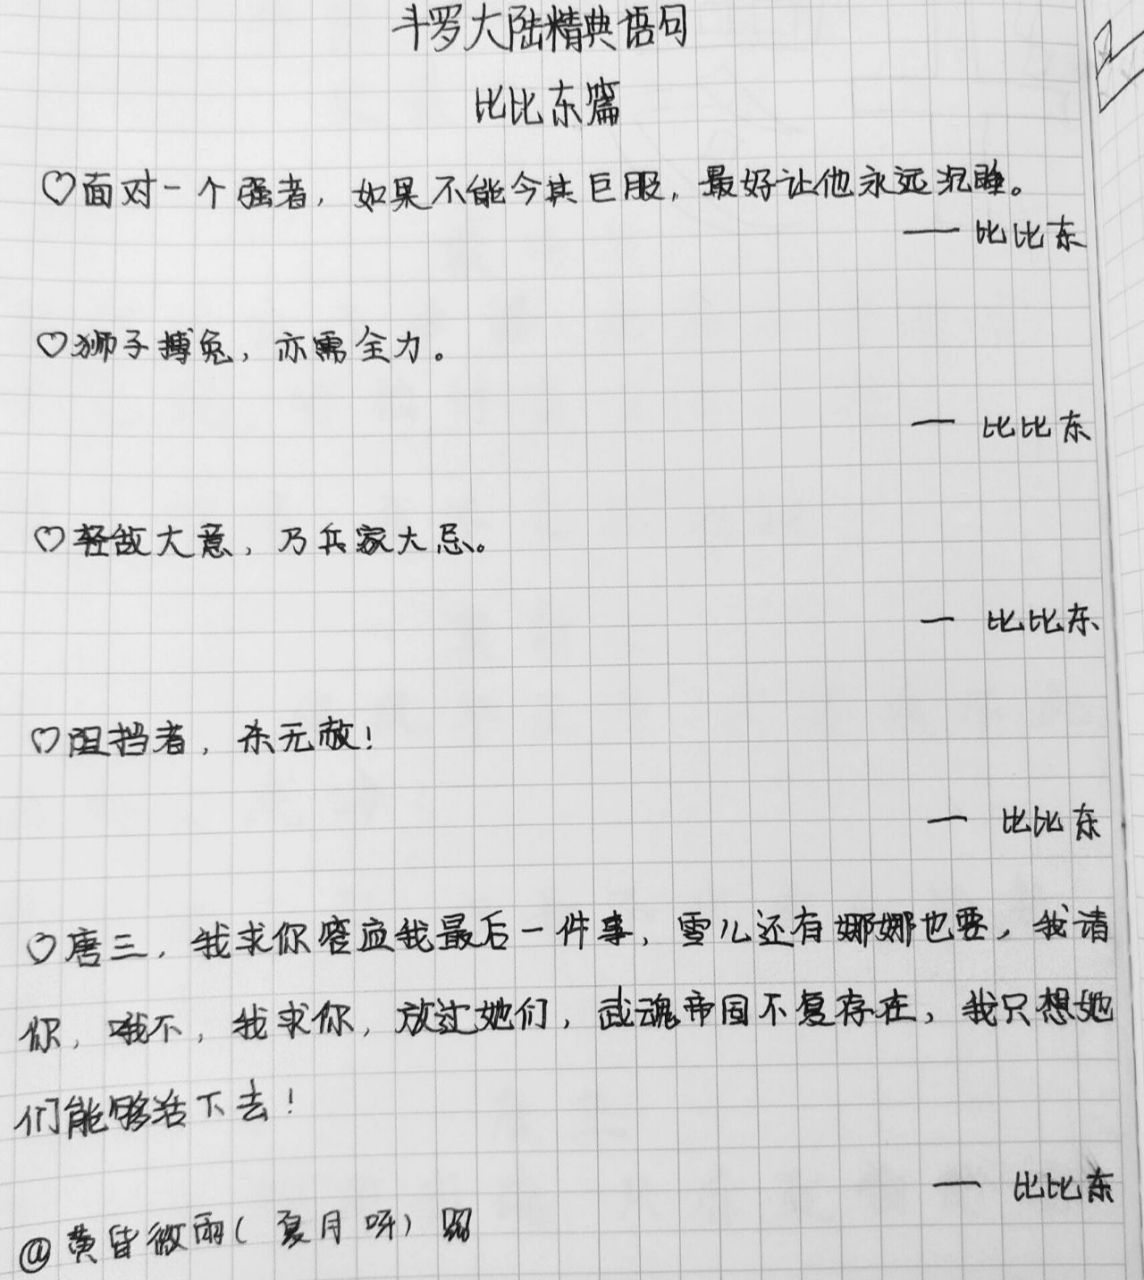 斗罗大陆精典语句
比比东篇
♡面对一个强者，如果不能令其臣服，最好让他永远沉睡。
—— 比比东
♡狮子搏兔，亦需全力。
— 比比东
♡轻敌大意，乃兵家大忌。
— 比比东
♡阻挡者，杀无赦！
— 比比东
♡唐三，我求你答应我最后一件事，雪儿还有娜娜也要，我请
你，哦不，我求你，放过她们，武魂帝国不复存在，我只想她
们能够活下去！
— 比比东
@黄昏微雨（夏月呀）